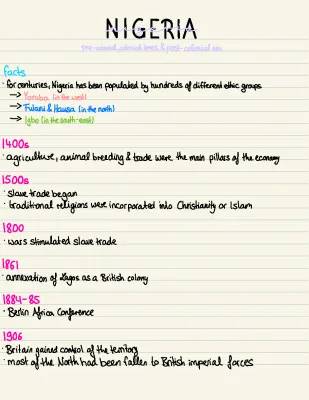 NIGERIA
pre-colonial, colonial times & post-colonial era
facts
· for centuries, Nigeria has been populated by hundreds of different ethic groups
→ Yoruba (in the west)
→ Fulani & Hausa (in the north)
→ Igbo (in the south-east)
1400s
· agriculture, animal breeding & trade were the main pillars of the economy
1500s
· slave trade began
· traditional religions were incorporated into Christianity or Islam
1800
· wars stimulated slave trade
1861
· annexation of Lagos as a British colony
1884-85
· Berlin Africa Conference
1906
· Britain gained control of the territory
· most of the North had been fallen to British imperial forces